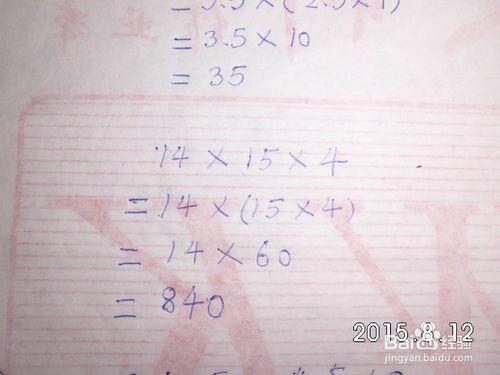 = 3.5 × (2.5 × 4)
= 3.5 × 10
= 35
14 × 15 × 4
= 14 × (15 × 4)
= 14 × 60
= 840
2015. 8. 12
Baidu 经验
jingyan.baidu.com